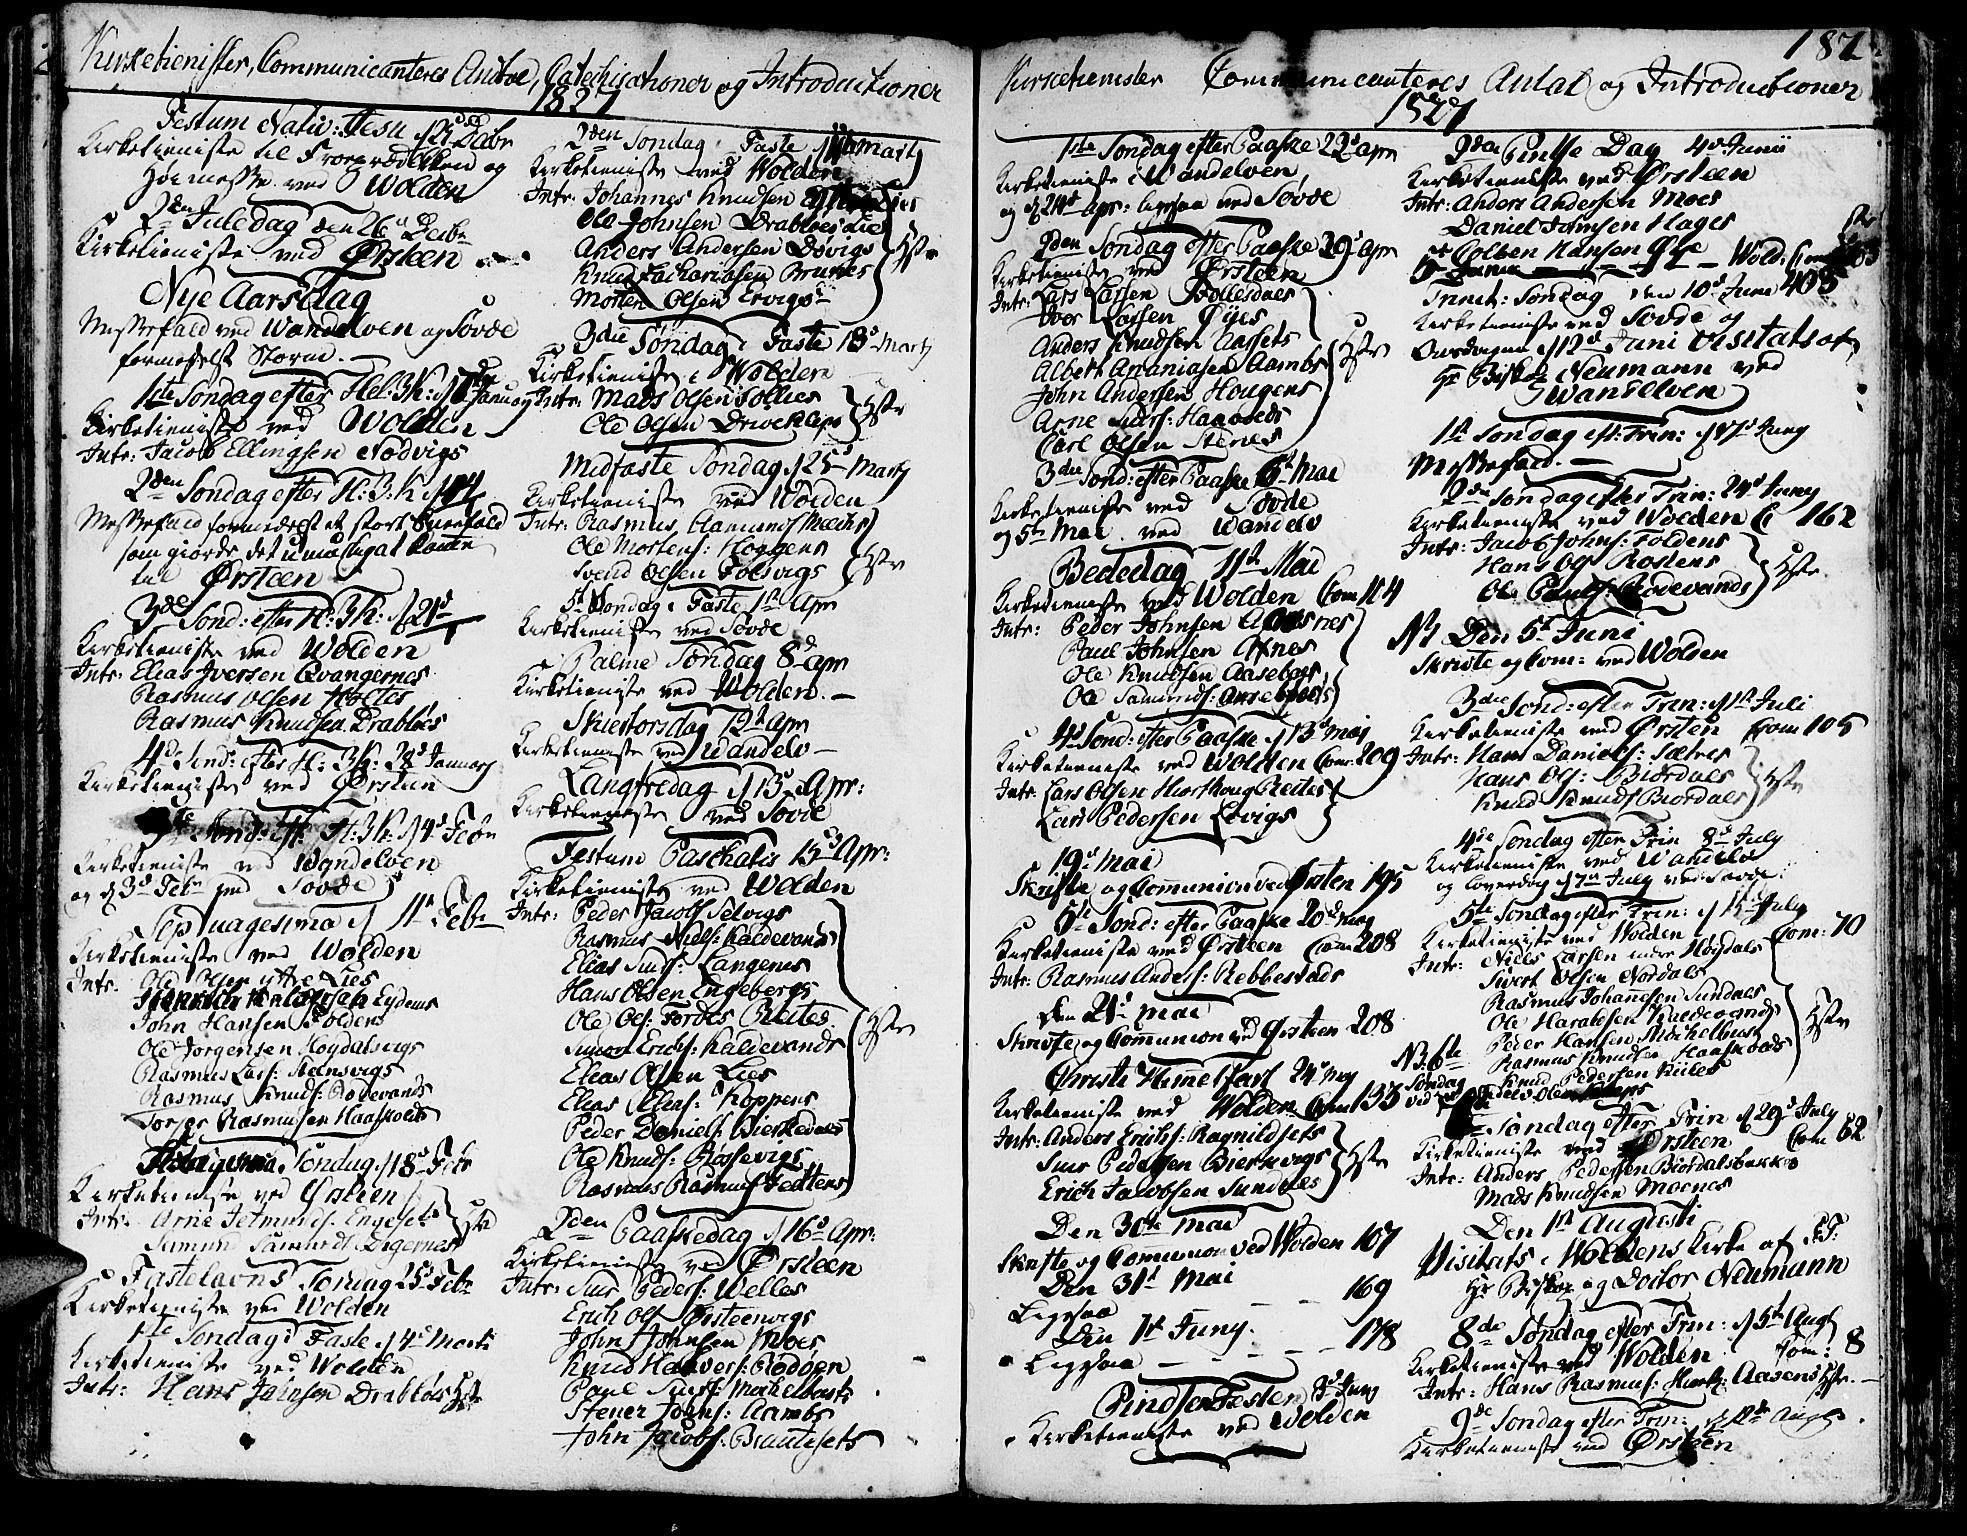 Kirketienister, Communicanteres Antal, Catechisationer og Introductioner
1827
Festum Nativ: Jesu
Kirketieniste til Froeprædiken og
Høimesse ved Wolden
2den Juledag den 26d Decbr
Kirketieniste ved Ørsteen
Nye Aarsdag
Messefald ved Wandelven og Søvde
formedelst Storm.
1ste Søndag efter Hel: 3K: Januar
Kirketieniste ved Wolden
Intr: Jacob Ellingsen Nødvigs
2den Søndag efter H: 3: K: 14
Messefald formedelst et stort Sneefald
som giorde det umueligt at komme
til Ørsteen
3die Sønd: efter H: 3K: 21d
Kirketieniste ved Wolden
Intr: Elias Iversen Qvangernes
Rasmus Olsen Holtes
Rasmus Knudsen Drabløes
4de Sønd: efter H: 3K: 28d January
Kirketieniste ved Ørsteen
Sønd: eft: H: 3K: 4d Febr
Kirketieniste ved Wandelven
og d 3d Febr ved Søvde
Septuagesima 11te Feb
Kirketieniste ved Wolden
Intr: Ole Olsen Lies
Eydems
John Hansen Foldens
Ole Jørgensen Høydalsvigs
Rasmus Lars: Steinsvigs
Rasmus Knuds: Rødevands
Torger Rasmussen Haaskolds
Søndag 18d Febr
Kirketieniste ved Ørsteen
Intr: Arne Jetmunds: Engesets
Samund Samunds: Digernes
Hstr
Fastelavns Søndag 25d Febr
Kirketieniste ved Wolden
1ste Søndag i Faste 4d Marti
Kirketieniste ved Wolden
Intr: Hans Johnsen Drabløs Hstr
2den Søndag i Faste 11te Marty
Kirketieniste ved Wolden
Intr: Johannes Knudsen
Ole Johnsen Drabløes
Anders Andersen Døvigs
Knud Zachariasen Brunes
Morten Olsen Ervigs
Hstr
3die Søndag i Faste 18d Marty
Kirketieniste i Wolden
Intr: Mads Olsen Folkes
Ole Olsen Driveklips
Hstr
Midfaste Søndag 25d Marty
Kirketieniste ved Wolden
Intr: Rasmus Aamunds
Ole Mortens: Hoggens
Svend Olsen Folsvigs
Hstr
5te Søndag i Faste 1ste Apr
Kirketieniste ved Søvde
Palme Søndag 8d apr
Kirketieniste ved Wolden. —
Skiertorsdag 12te apr
Kirketieniste ved Wandelv —
Langfredag 13d Apr:
Kirketieniste ved Søvde
Festum Paschatis 15d Apr:
Kirketieniste ved Wolden
Intr: Peder Jacobs Selvigs
Rasmus Niels: Kaldevands
Elias Knuds: Langenes
Hans Olsen Engebergs
Ole Ols: Fordes Reites
Simon Erichs: Kaldevands
Elias Olsen Lies
Elias Elias: Koppens
Peder Daniels: Bierkedals
Ole Knuds: Rossevigs
Rasmus Rasmus Tedtens
Hstr
2den Paaskedag 16d Apr:
Kirketieniste ved Ørsteen
Intr: Siur Peders: Welles
Erich Ols Ørsteenvigs
John Johnsen Moes
Knud Halvers: Rødøen
Paul Siurs: Mickelbusts
Stener Johns: Aambs
John Jacobs: Brautesets
187
Kirketienister Communicanteres Antal og Introductioner
1827
1ste Søndag efter Paaske 22d apr
Kirketieniste i Wandelven
og d 21d apr: ligesaa ved Søvde
2den Søndag efter Paaske 29d apr
Kirketieniste ved Ørsteen
Intr: Lars Larsen Follesdals
Iver Larsen Øyes
Anders Knudsen Aassets
Albert Ananiasen Aambs
John Andersen Hougens
Arne Siurs: Haavolds
Carl Olsen Stenes
Hstr
3die Sønd: efter Paaske 6te Mai
Kirketieniste ved Søvde
og 5te Mai ved Wandelv
Bededag 11te Mai
Kirketieniste ved Wolden Com 114
Intr: Peder Johnsen Aarsnes
Paul Johnsen Axnes
Ole Knudsen Aasebøes
Ole Samunds:
4de Sønd: efter Paaske 13d maj
Kirketieniste ved Wolden Com: 209
Intr: Lars Olsen Hiorthoug Reites
Lars Pedersen Løvigs
19d mai
Skrifte og Communion ved Ørsten 195
5te Sønd: efter Paaske 20d maj
Kirketieniste ved Ørsteen Com 208
Intr: Rasmus Anders: Rebbestads
Den 21d mai
Skrifte og Communion ved Ørsteen 208
Christi Himmelfart 24d Maj
Kirketieniste ved Wolden Com 133
Intr: Anders Erichs: Ragnildsets
Siur Pedersen Bierkvigs
Erich Jacobsen Sundals
Hstr
Den 30te Mai
Skrifte og Communion ved Wolden 107
Den 31d Mai
Ligesaa — — 169
Den 1ste Juny.
Ligesaa — — — — 178
Pindsefesten 3d Juny
Kirketieniste ved Wolden
2den Pintse Dag 4d Junii
Kirketieniste ved Ørsteen
Intr: Anders Andersen Moes
Daniel Johnsen Hages
Colben Hansen Øye
Wold: Com
Trinit: Søndag den 10d Juni 405
Kirketieniste ved Søvde og
Onsdagen d 12d Juni Visitats af
Hr Biskop Neumann ved
Wandelven
1ste Søndag eft: Trin: 17d Juny
Messefald. —
2den Søndag efter Trin: 24d Juny
Kirketieniste ved Wolden C 162
Intr: Jacob Johns: Foldens
Hans Ols Rostens
Ole Pauls: Rødevands
Hstr
NB Den 5te Juni
Skrifte og Com: ved Wolden
3die Sønd: efter Trin: 1ste Juli
Kirketieniste ved Ørsten Com 105
Intr: Hans Daniels: Sætres
Hans Ols: Biørdals
Knud Knuds Biørdals
Hstr
4de Søndag efter Trin 8d July
Kirketieniste ved Wandelv
og Løverdag d 7de July ved Søvde.
5te Søndag efter Trin: July
Kirketieniste ved Wolden Com: 70
Intr: Niels Larsen indre Høydals
Sivert Olsen Nordals
Rasmus Johannesen Sundals
Ole Haraldsen Kaldevands
Peder Hansen Mickelbust
Rasmus Knudsen Haaskolds
Knud Pedersen Kiiles
Hstr
NB: 6te
Søndag
Søndag efter Trin d 29d July
Kirketieniste ved Ørsteen Com 62
Intr: Anders Pedersen Biørdalsbakke
Mads Knudsen Moenes
Den 1ste Augusti
Visitats i Woldens Kirke af S: T:
Hr Biskop og Doctor Neumann
8de Søndag efter Trin: 5te Augt
Kirketieniste ved Wolden Com: 8
Intr: Hans Rasmus: Aasens Hstr. —
9de Søndag efter Trin: 12te Augt
Kirketieniste ved Ørsteen